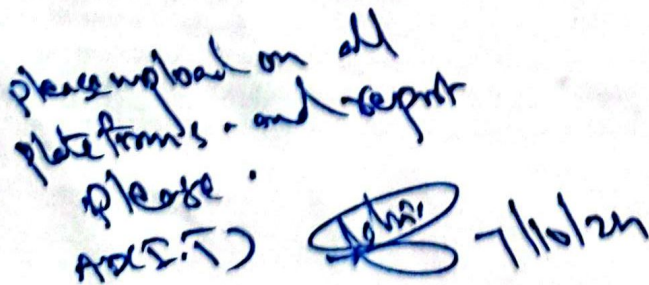 please upload on all
plateform's. and report
please.
AD(I.T) 7/10/24